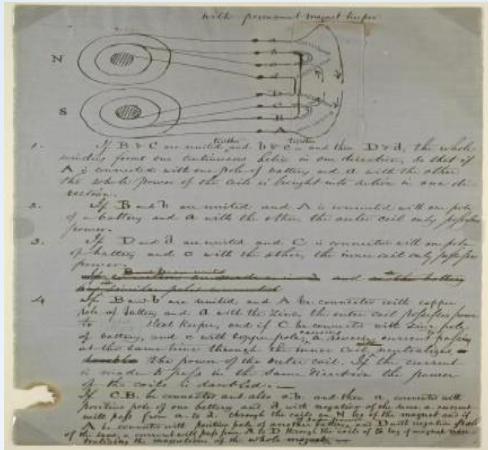 with permanent magnet keeper
N
S
1. If B & C are united together and b & c together and then D & d, the whole
winding forms one continuous helix in one direction, so that if
A is connected with one pole of battery and a with the other
the whole power of the coils is brought into action in one di-
rection.
2. If B and b are united and A is connected with one pole
of a battery and a with the other the outer coil only possesses
power.
3. If D and d are united and C is connected with one pole
of battery and c with the other, the inner coil only possesses
power.
4. If B and b are united and A be connected with copper
pole of battery and a with the zinc, the outer coil possesses power
to Steel Keeper, and if C be connected with zinc pole
of battery, and c with copper pole, causing a reverse current passing
at the same time through the inner coil neutralizes
the power of the outer coil. If the current
is made to pass in the same direction the power
of the coils is doubled.
If C.B. be connected and also c.b. and then a connected with
positive pole of one battery and d with negative of the same a current
will pass from a to d through the coils on N leg of the magnet and if
A be connected with positive pole of another battery and D with negative pole
of the same, a current will pass from A to D through the coils of S leg of magnet neu-
tralizing the magnetism of the whole magnet.